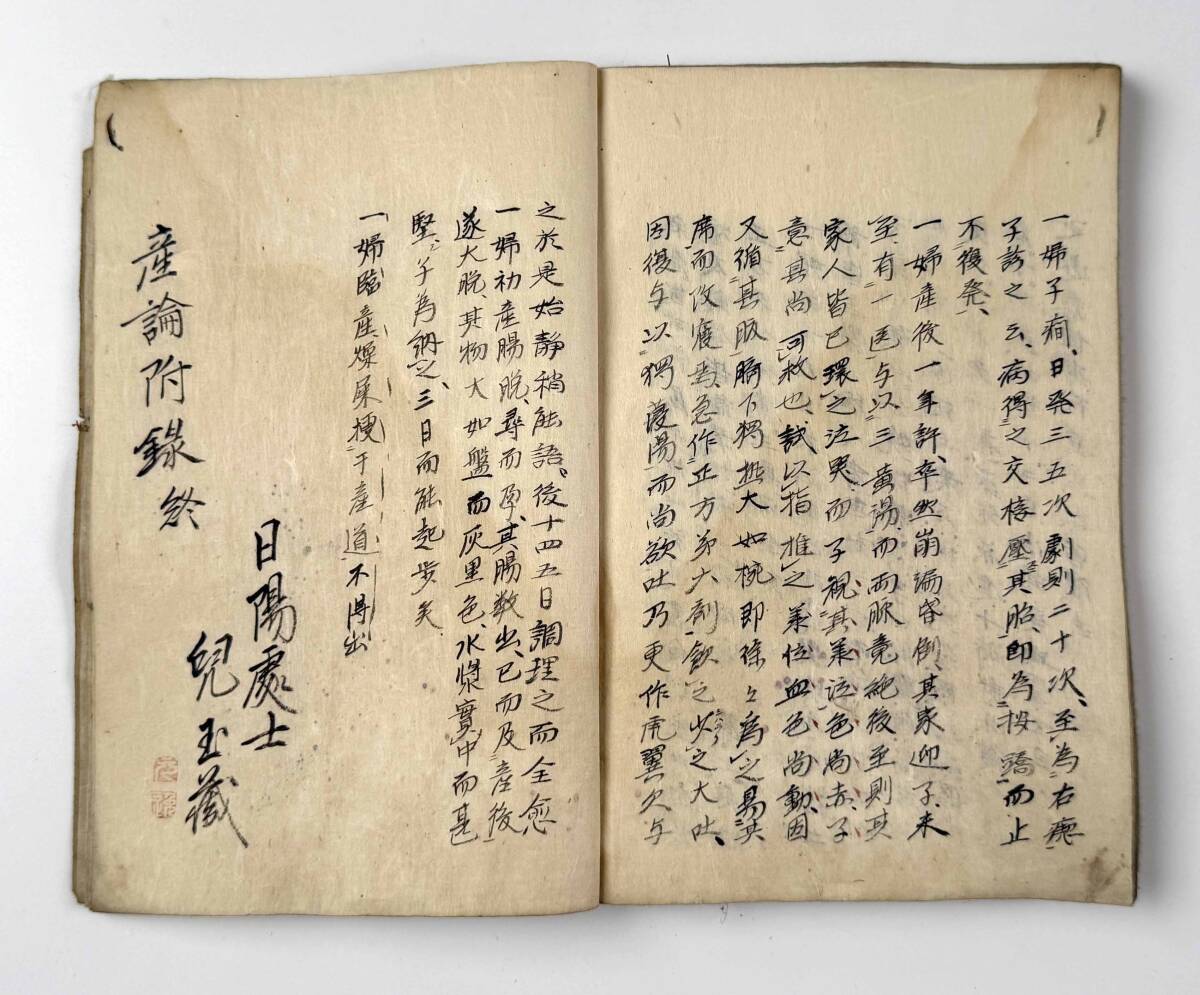 一婦子癇、日発三五次、劇則二十次、至為右癱
子診之云、病得之交接壓其胎、即為按蹻而止
不復発、
一婦産後一年許、卒然崩漏昏倒、其家迎子、未
至、有一医与以三黄湯、而両脈竟絶、後至則其
家人皆已環之泣哭、而子視其面色尚赤、子
意其尚可救也、試以指推之、血色尚動、因
又循其腹、臍下独大如椀、即徐々為之易其
席而改寝焉、急作正方大剤飲之、少之大吐、
因復与以獨湯、而尚欲吐、乃更作虎翼欠与
之、於是始静稍能語、後十四五日調理之而全愈
一婦初産腸脱、尋而孕、其腸数出、已而及産後
遂大脱、其物大如盤而灰黒色、水漿實中而甚
堅、子為納之、三日而能起歩矣
一婦臨産燥屎梗于産道不得出
日陽處士
兒玉蔵
産論附録終